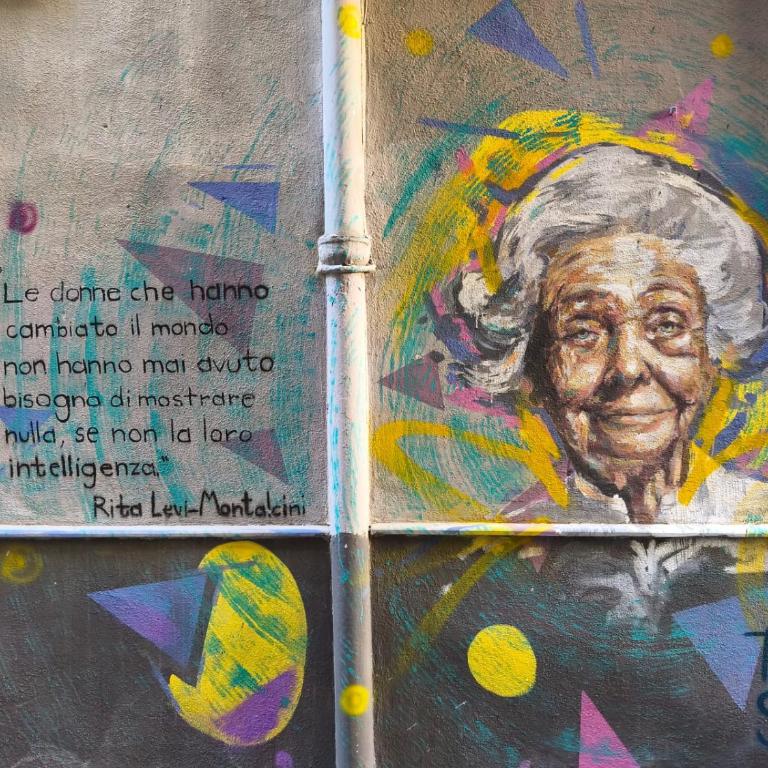 "Le donne che hanno
cambiato il mondo
non hanno mai avuto
bisogno di mostrare
nulla, se non la loro
intelligenza."
Rita Levi-Montalcini